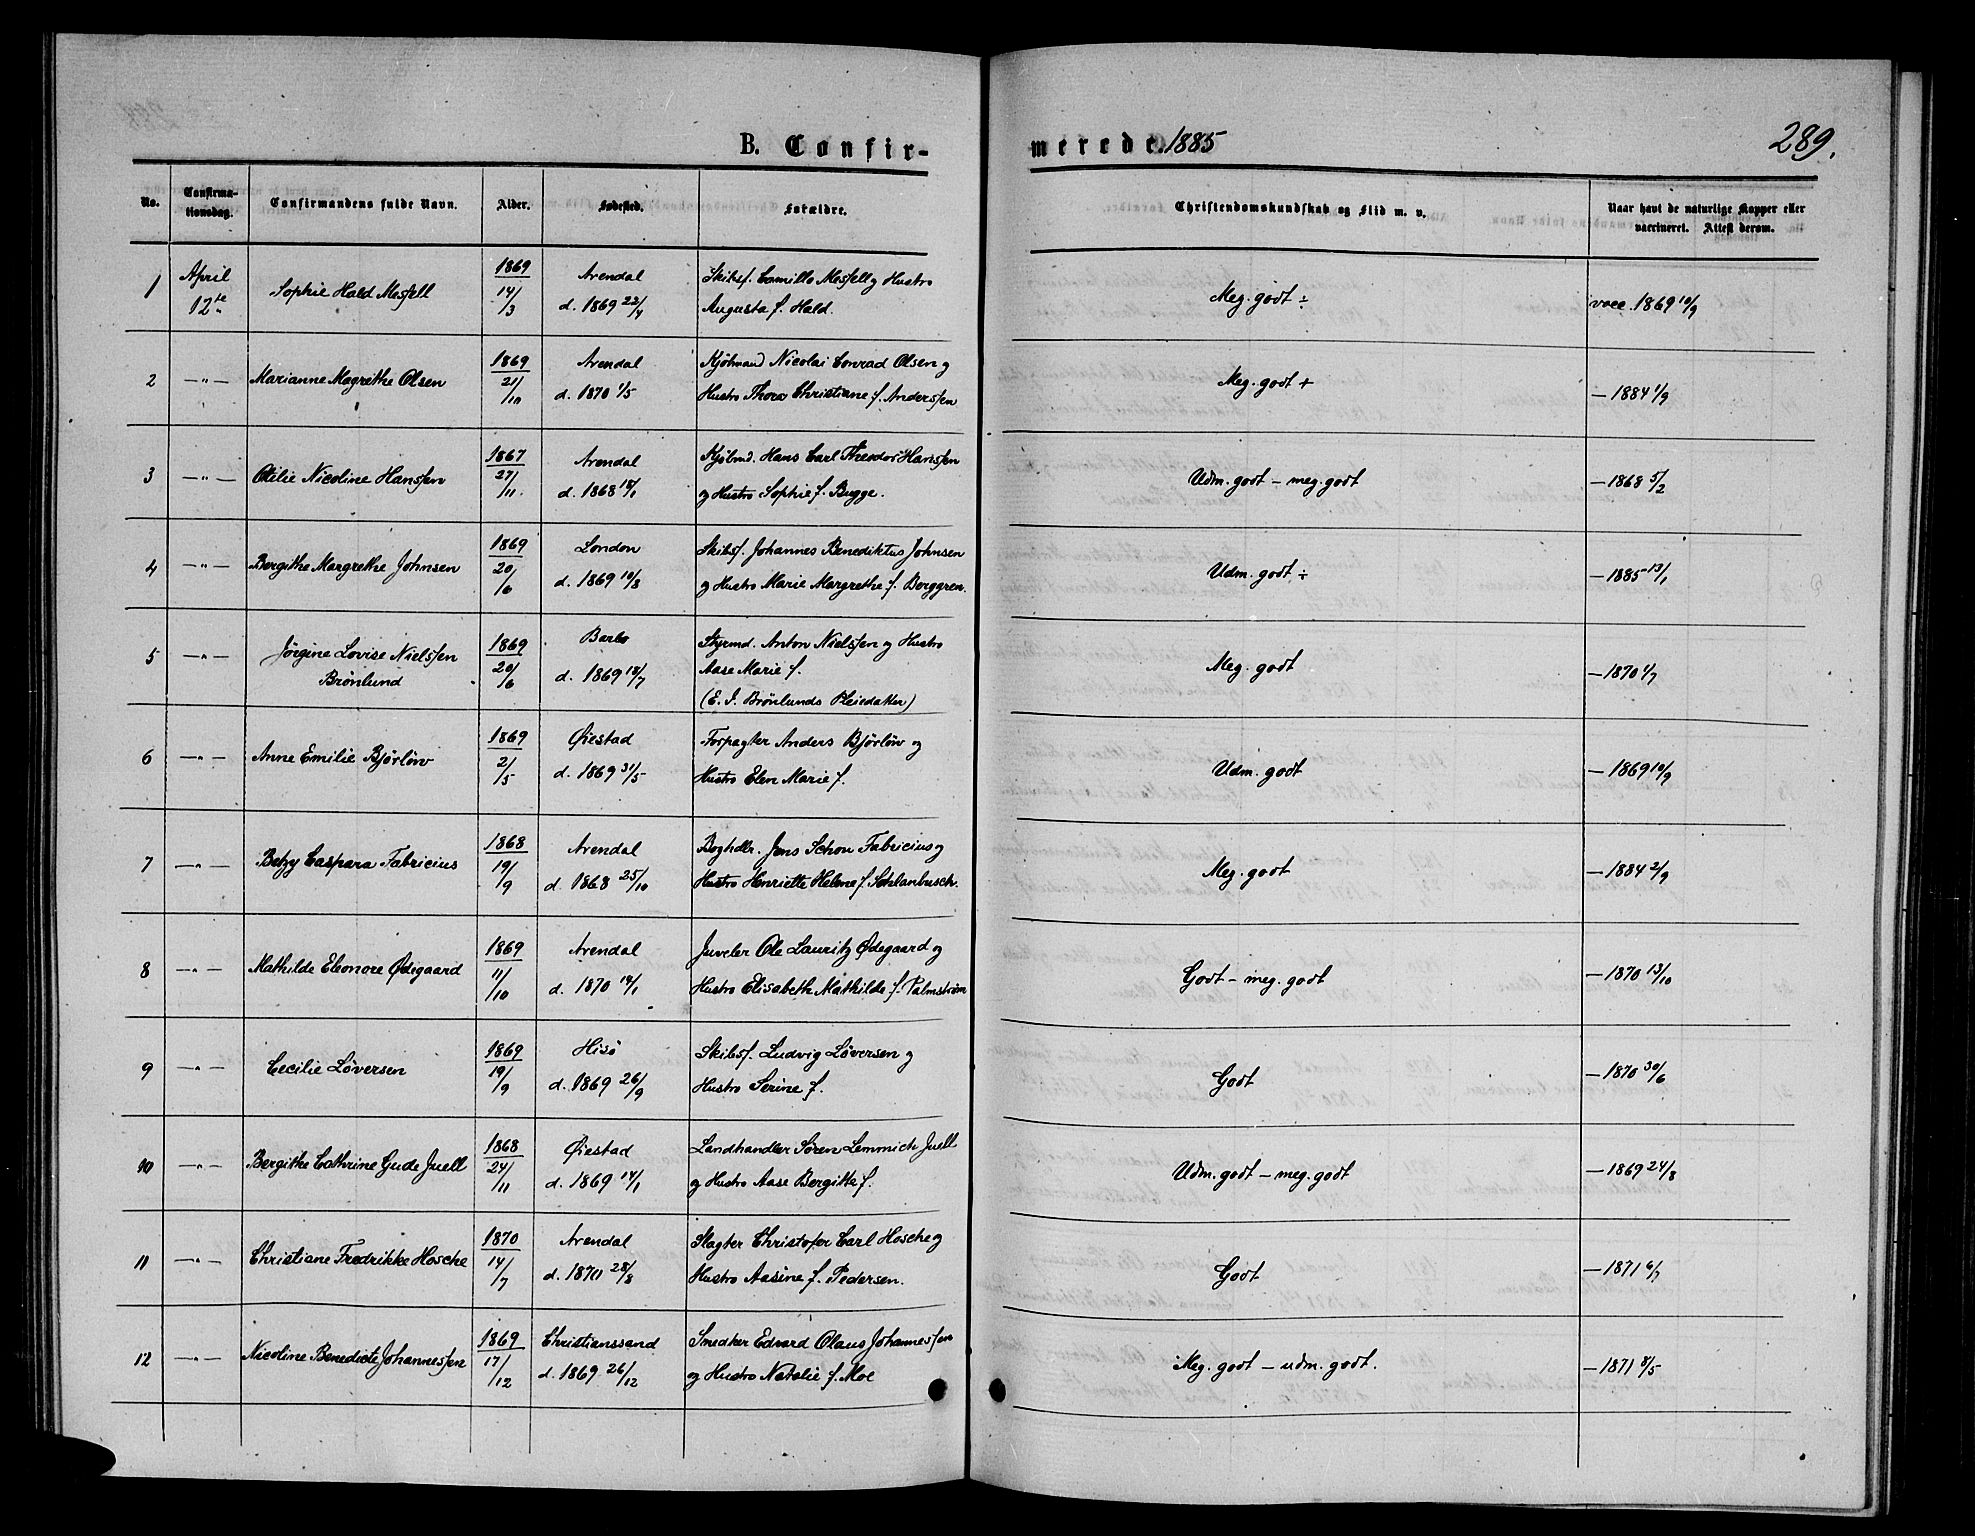 B. Confir-
merede. 1885
289.
No.
Confirma-
tionsdag.
Confirmandens fulde Navn.
Alder.
Fødested.
Forældre.
Christendomskundskab og Flid m. v.
Naar havt de naturlige Kopper eller
vaccineret. Attest derom.
1
April
12te
Sophie Hald Mesfell
1869
14/3
Arendal
d. 1869 22/4
Skibsf. Camillo Mesfell og Hustro
Augusta f. Hald.
Meg. godt ÷
vacc. 1869 10/9
2
—„—
Marianne Magrethe Olsen
1869
21/10
Arendal
d. 1870 1/5
Kjøbmand Nicolai Conrad Olsen og
Hustro Thora Christiane f. Andersſen
Meg. godt +
— 1884 1/9
3
—„—
Otilie Nicoline Hansſen
1867
27/11.
Arendal
d. 1868 18/1
Kjøbmd. Hans Carl Theodor Hansſen
og Hustro Sophie f. Bugge.
Udm. godt – meg. godt
— 1868 5/2
4
—„—
Bergithe Margrethe Johnsen
1869
20/6
London
d. 1869 10/8
Skibsf. Johannes Benediktus Johnsen
og Hustro Marie Margrethe f. Berggren.
Udm. godt ÷
— 1885 13/1
5
—„—
Jørgine Lovise Nielsſen
Brönlund
1869
20/6
Barbo
d. 1869 18/7
Styrmd. Anton Nielsſen og Hustro
Aase Marie f.
(E. I. Brönlunds Pleiedatter)
Meg. godt
— 1870 1/7
6
—„—
Anne Emilie Bjørløw
1869
2/5
Øiestad
d. 1869 31/5
Forpagter Anders Bjørløw og
Hustro Elen Marie f.
Udm. godt
— 1869 10/9
7
—„—
Betzy Caspara Fabricius
1868
19/9
Arendal
d. 1868 25/10
Boghdlr. Jens Schou Fabricius og
Hustro Henriette Helene f. Schlanbusch.
Meg. godt
— 1884 2/9
8
—„—
Mathilde Eleonore Ødegaard
1869
11/10
Arendal
d. 1870 14/1
Juveler Ole Lauritz Ødegaard og
Hustro Elisabeth Mathilde f. Palmstrøm
Godt – meg. godt
— 1870 13/10
9
—„—
Cecilie Löversen
1869
19/9
Hisö
d. 1869 26/9
Skibsf. Ludvig Löversen og
Hustro Serine f.
Godt
— 1870 30/6
10
—„—
Bergithe Cathrine Gude Juell
1868
24/11
Øiestad
d. 1869 14/1
Landhandler Sören Lemmich Juell
og Hustro Aase Bergitte f.
Udm. godt – meg. godt
— 1869 24/8
11
—„—
Christiane Fredrikke Hosche
1870
14/7
Arendal
d. 1870 28/8
Slagter Christofer Carl Hosche og
Hustro Aasine f. Pedersen.
Godt
— 1871 6/7
12
—„—
Nicoline Benedicte Johannesſen
1869
17/12
Christianssand
d. 1869 26/12
Snedker Edvard Olaus Johannesſen
og Hustro Natalie f. Moe
Meg. godt – udm. godt.
— 1871 8/5